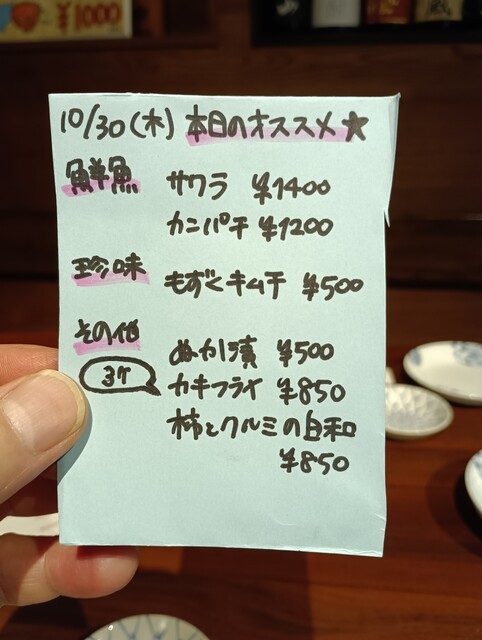 ¥1000
10/30(木) 本日のオススメ★
鮮魚 サワラ ¥1400
カンパチ ¥1200
珍味 もずくキムチ ¥500
その他
ぬか漬 ¥500
3ケ カキフライ ¥850
柿とクルミの白和
¥850